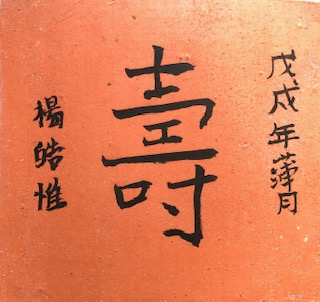 戊戌年蒲月
壽
楊皓惟